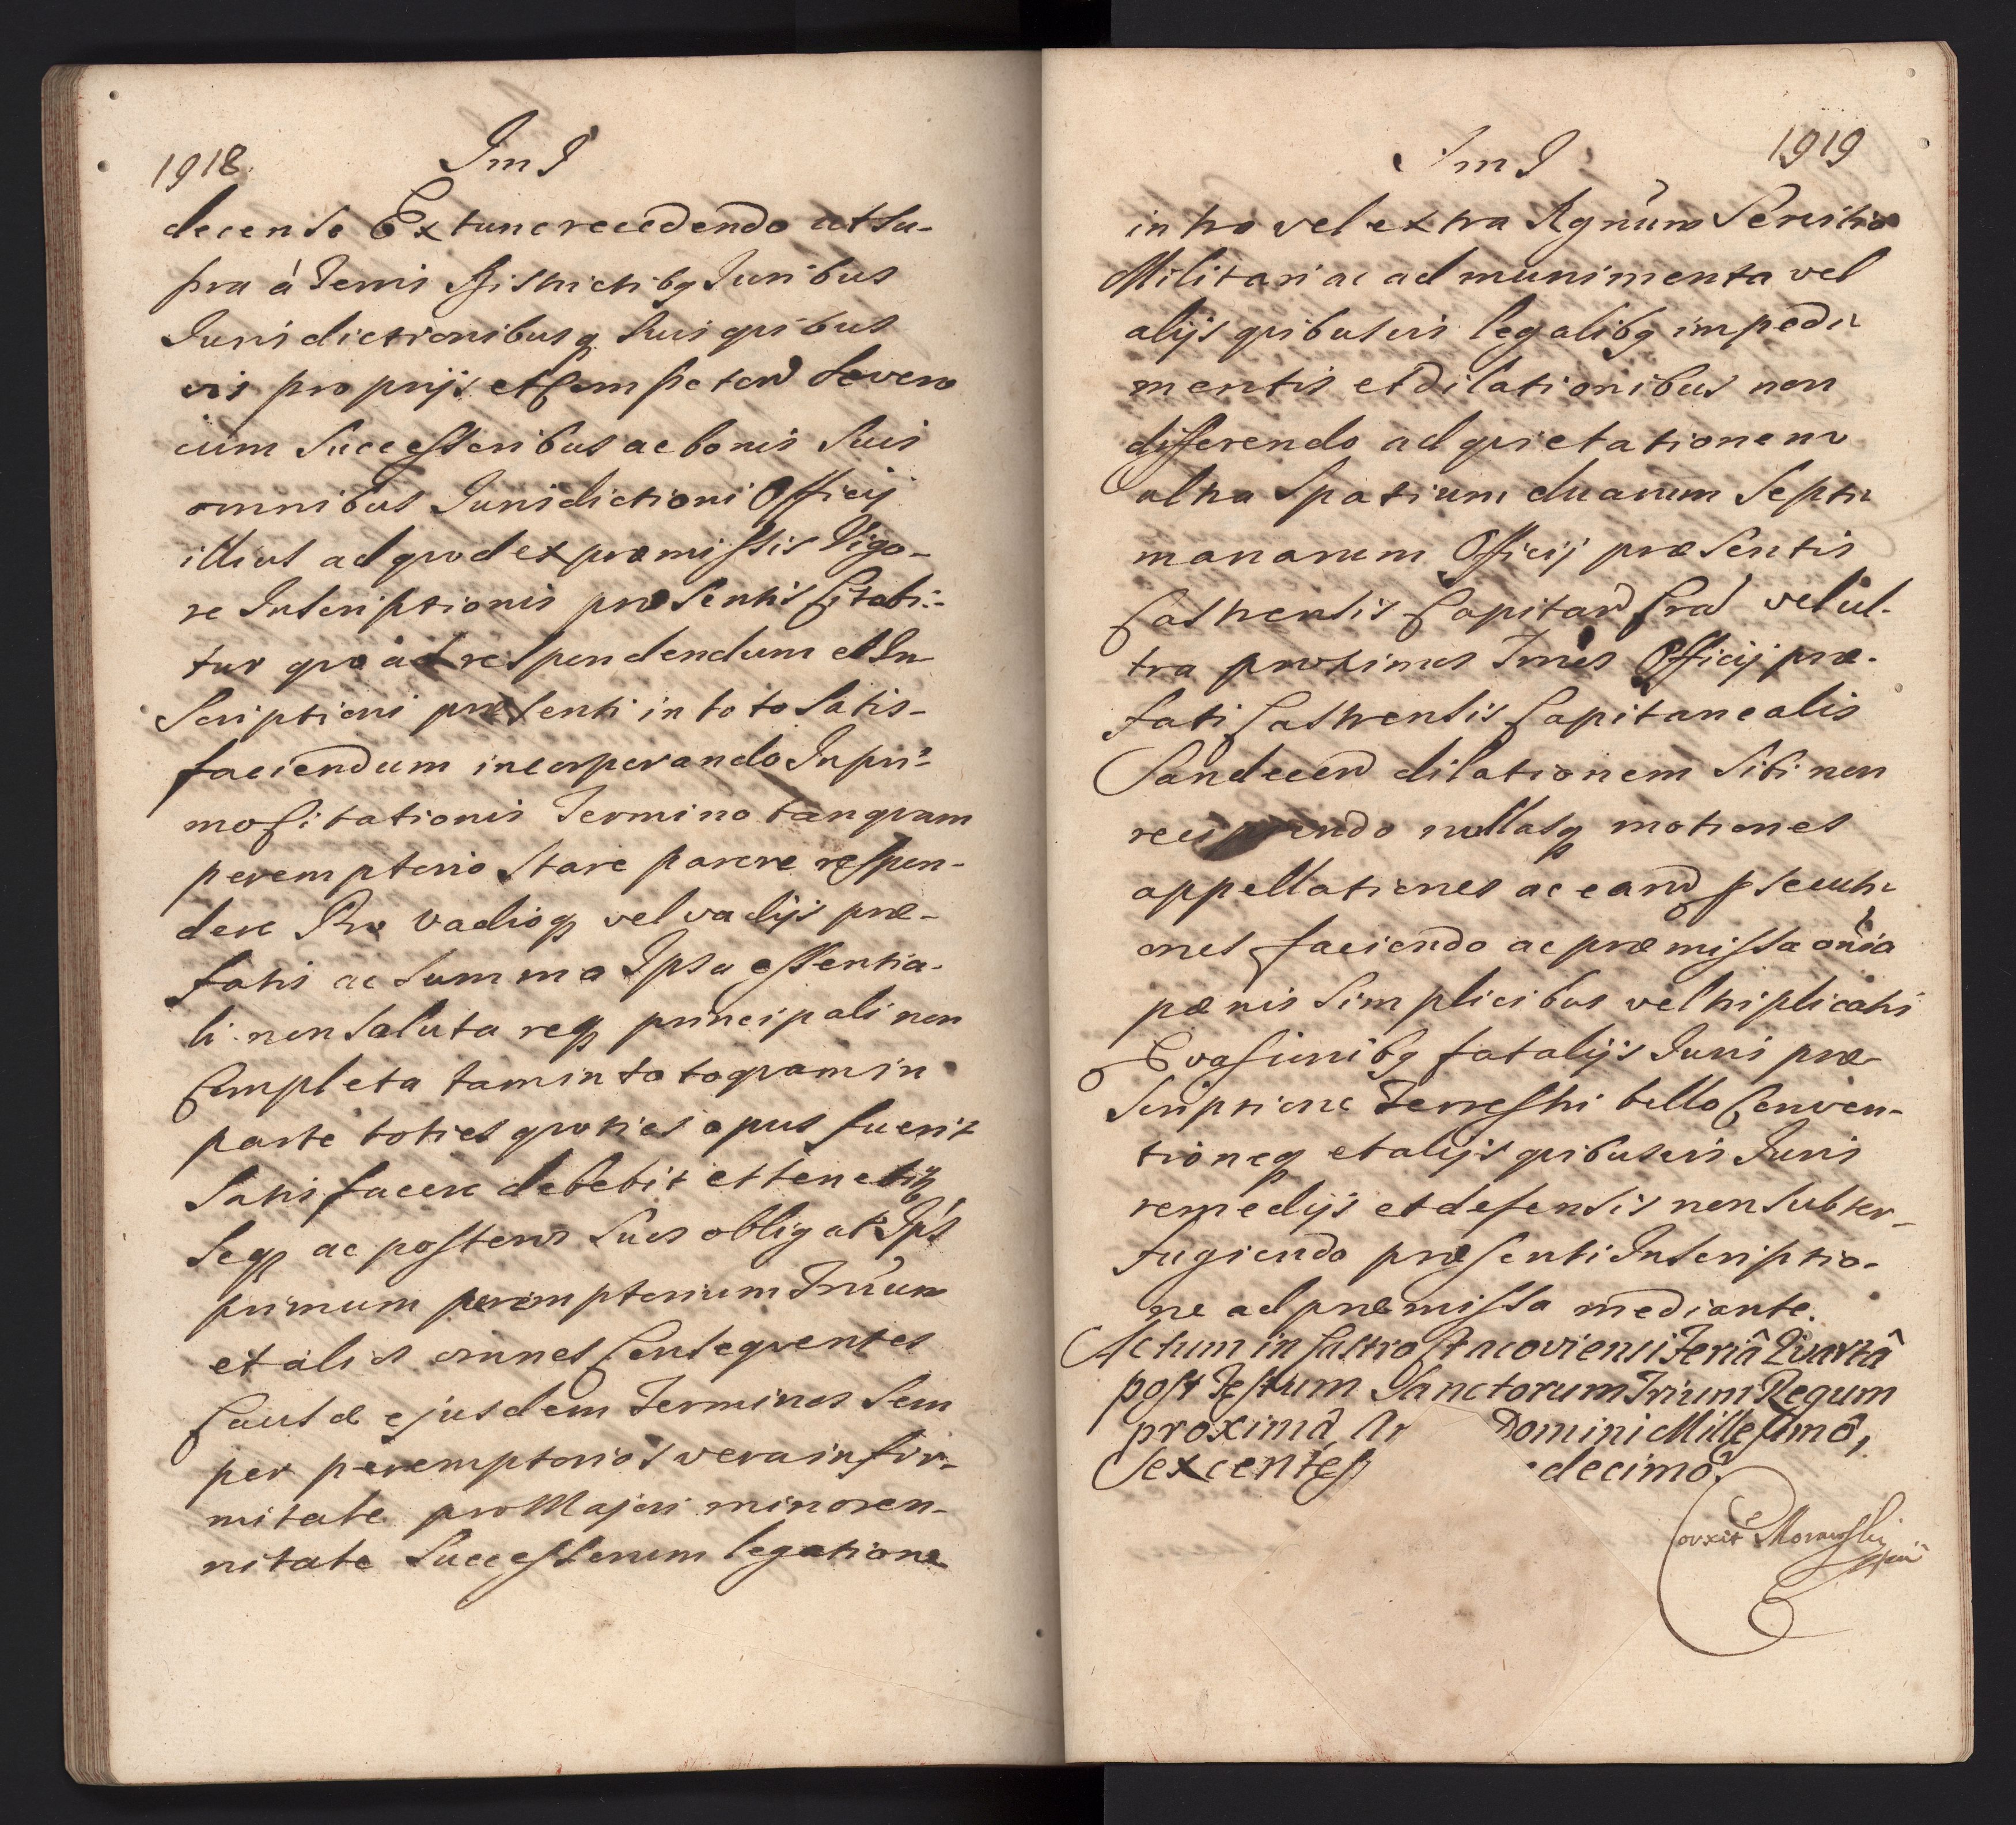 1918.
Im J
decense Extunc recedendo ut su-
pra á Terris Districtibq Juribus
Jurisdictionibusq suis quibus
vis proprijs et Competen Se vero
cum Successoribus ac bonis suis
omnibus Jurisdictioni Officij
illius ad quod ex præmissis Vigo-
re Inscriptionis præsentis Citabi-
tur quo ad respondendum et In
Scriptioni præsenti in toto satis-
faciendum incorporando In pri-
mo Citationis Termino tanquam
peremptorio stare parere respon-
dere Pro vadioq vel vadijs præ-
fatis ac summa Ipsa essentia-
li non saluta req principali non
Completa tam in toto quam in
parte toties quoties opus fuerit
Satisfacere debebit et tenebitr
Seq ac posteros suos obligat Ips
primum peremptorium Trium
et alios omnes Consequentes
Causæ ejusdem Terminos sem
per peremptorios vera infir-
mitate pro Majori minoren-
nitate Successorum legatione
1919
Im J
intra vel extra Rgnum Servitio
Militari ac ad munimenta vel
alijs quibusvis legalibq impedi
mentis et dilationibus non
differendo ad quietationem
ultra Spatium duarum Septi
manarum Officij præsentis
Castrensis Capitan Cra vel ul-
tra proximos Trnos Officij præ-
fati Castrensis Capitanealis
Sandecen dilationem Sibi non
recipiendo nullasq motiones
appellationes ac earn psecuti
ones faciendo ac præmissa onia
pænis simplicibus vel triplicatis
Evasionibq fatalijs Juris præ
scriptione terrestri bello Conven-
tioneq et alijs quibusvis Juris
remedijs et defensis non subter-
fugiendo præsenti Inscriptio-
ne ad præmissa mediante.
Actum in Castro Cracoviensi Feriâ Quartâ
post Festum Sanctorum Trium Regum
proximâ Domini Millesimô,
Sexcentes decimô.